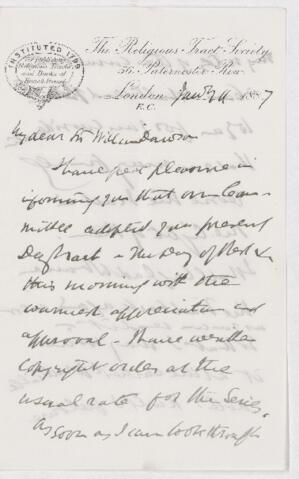 INSTITUTED 1799
Religious Tracts
and Books at
The Religious Tract Society
56, Paternoster Row
London Jany 1887
E.C.
My dear Sir William Dawson
I have great pleasure in
informing you that our Com-
mittee adopted your present
Day Tract - The Day of Rest &
this morning with the
warmest appreciation and
approval - I have written
Copyright order at the
usual rate for this Series.
As soon as I can look through